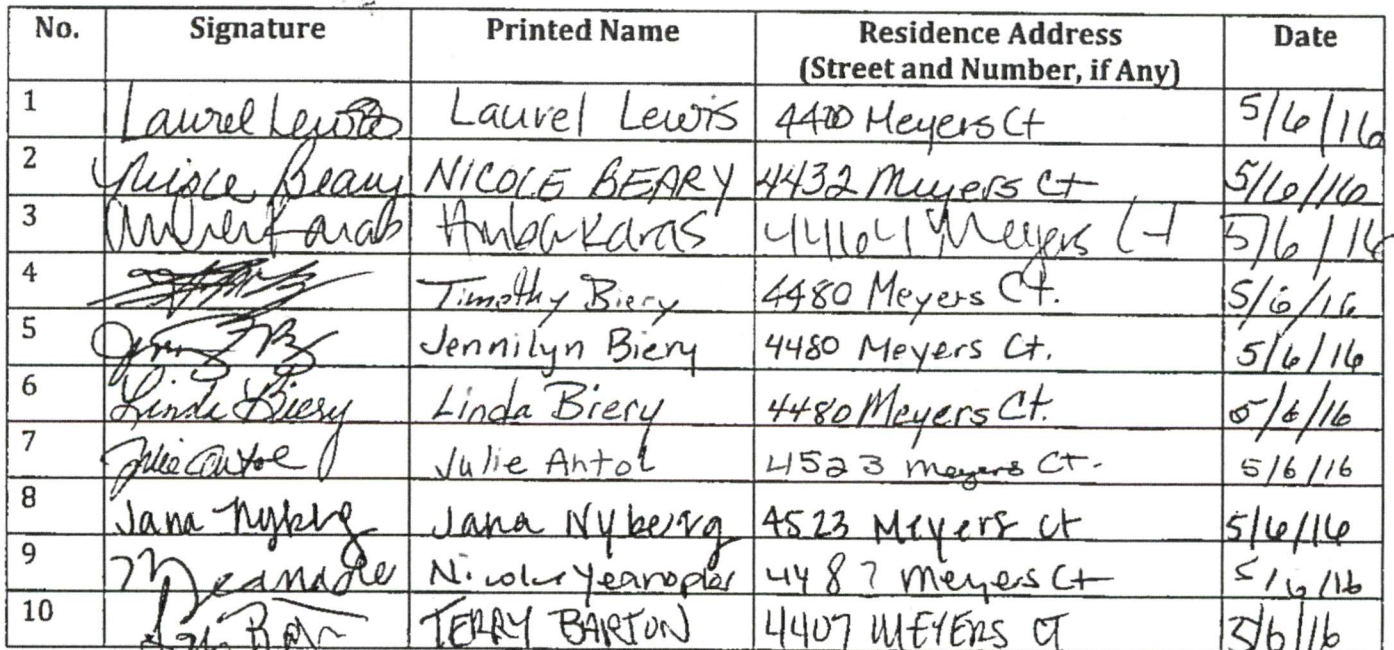 No. Signature Printed Name Residence Address Date
(Street and Number, if Any)
1 Laurel Lewis Laurel Lewis 4400 Meyers Ct 5/6/16
2 Nicole Beary NICOLE BEARY 4432 Meyers Ct 5/6/16
3 Karas 4464 Meyers Ct 5/6/16
4 Timothy Biery 4480 Meyers Ct. 5/6/16
5 Jennilyn Biery 4480 Meyers Ct. 5/6/16
6 Linda Biery Linda Biery 4480 Meyers Ct. 5/6/16
7 Julie Antol Julie Antol 4523 Meyers Ct. 5/6/16
8 Jana Nyberg Jana Nyberg 4523 Meyers Ct 5/6/16
9 Meyers Ct 5/6/16
10 TERRY BARTON 4407 MEYERS CT 5/6/16